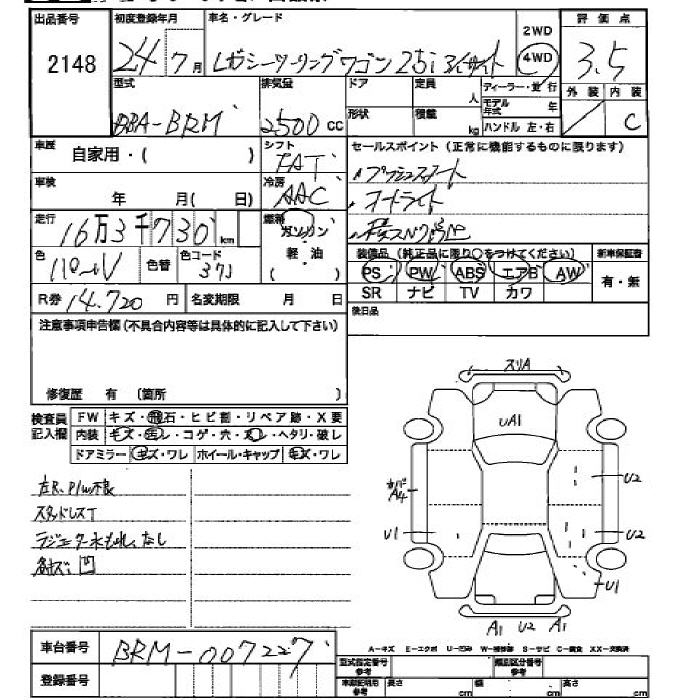 出品番号 初度登録年月 車名・グレード 2WD 評価点
2148 24年7月 レガシーツーリングワゴン 2.5i アイサイト 4WD 3.5
外装 内装
C
型式 排気量 ドア 定員 人 ディーラー・並行
モデル年式 年
DBA-BRM 2500 CC 形状 積載 kg ハンドル 左・右
車歴 自家用・( ) シフト FAT セールスポイント(正常に機能するものに限ります)
・プッシュスタート
車検 年 月( 日) 冷房 AAC ・オートライト
走行 16万3千730km 燃料 ガソリン
軽油
( )
色 パール 色替 色コード 37J
装備品(純正品に限り○をつけてください) 新車保証書
PS PW ABS エアB AW 有・無
SR ナビ TV カワ
R券 14.720 円 名変期限 月 日 後日品
注意事項申告欄(不具合内容等は具体的に記入して下さい)
修復歴 有 (箇所 )
検査員記入欄 FW キズ・飛石・ヒビ割・リペア跡・X要
内装 キズ・汚レ・コゲ・穴・スレ・ヘタリ・破レ
ドアミラー キズ・ワレ ホイール・キャップ キズ・ワレ
スリA
UA1
カバ
A4
U2
U1
U2
U1
A1 U2 A1
左R.P/w不良
スタッドレスT
ラジエター水もれ、なし
各キズ、凹
車台番号 BRM-007227
登録番号
A-キズ E-エクボ U-凹ミ W-補修跡 S-サビ C-腐食 XX-交換済
型式指定番号 参考 類別区分番号 参考
車庫証明用 参考 長さ cm 幅 cm 高さ cm